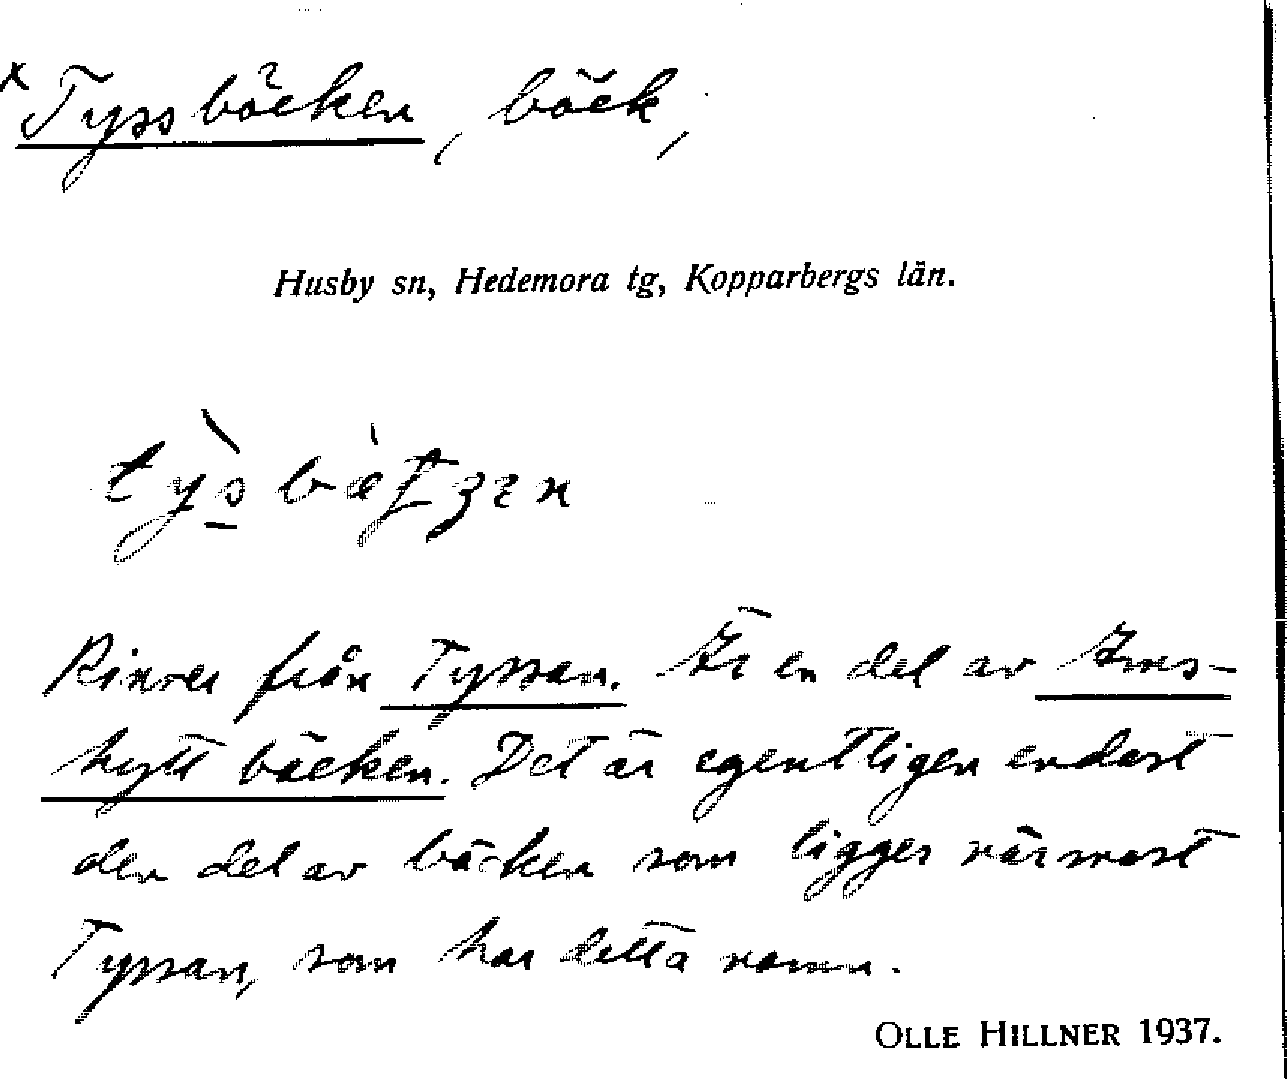 x Tyssbäcken, bäck,
Husby sn, Hedemora tg, Kopparbergs län.
Rinner från Tyssan. Är en del av
hyttbäcken. Det är egentligen endast
den del av bäcken som ligger närmast
Tyssan, som har detta namn.
OLLE HILLNER 1937.